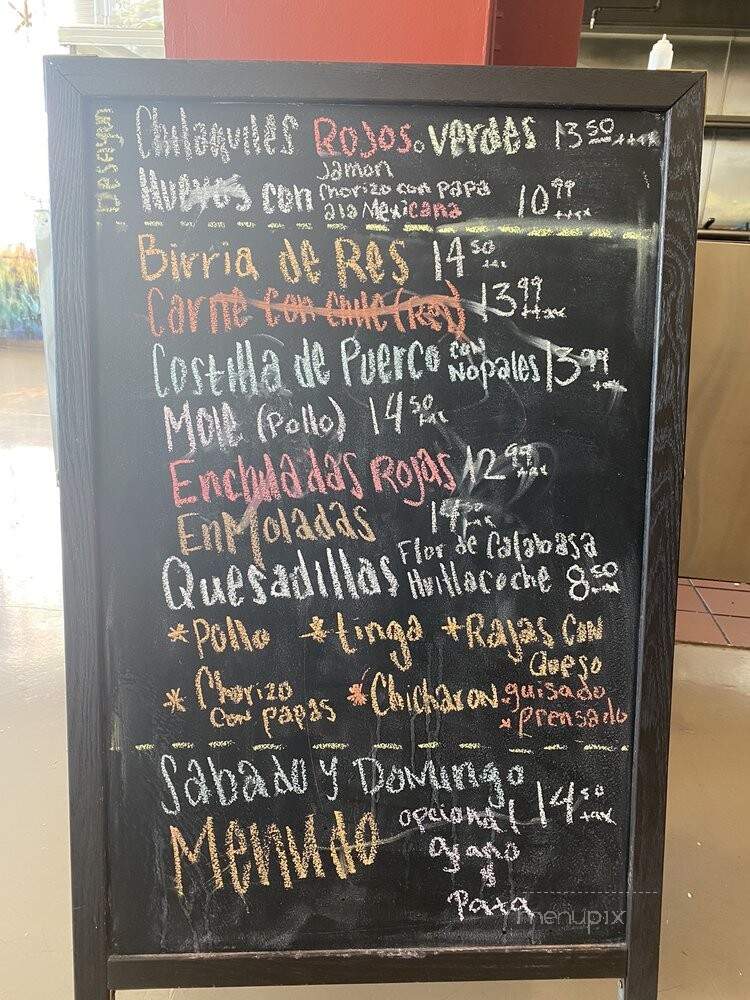 Desayun
Chilaquiles Rojos o verdes 13 50 +tax
Huevos con Jamon
chorizo con papa
ala Mexicana 10 99 +tax
Birria de Res 14 50
Carne Con Chile (Res) 13 99 +tax
Costilla de Puerco con Nopales 13 99
Mole (Pollo) 14 50
Enchiladas Rojas 12 99 +tax
EnMoladas 14 50
Quesadillas Flor de Calabasa
Huitlacoche 8 50
*Pollo *tinga *Rajas Con
Queso
* Chorizo
con papas * Chicharon *guisado
*prensado
Sabado y Domingo
Menudo opcional 14 50 +tax
y
Pata
menupix